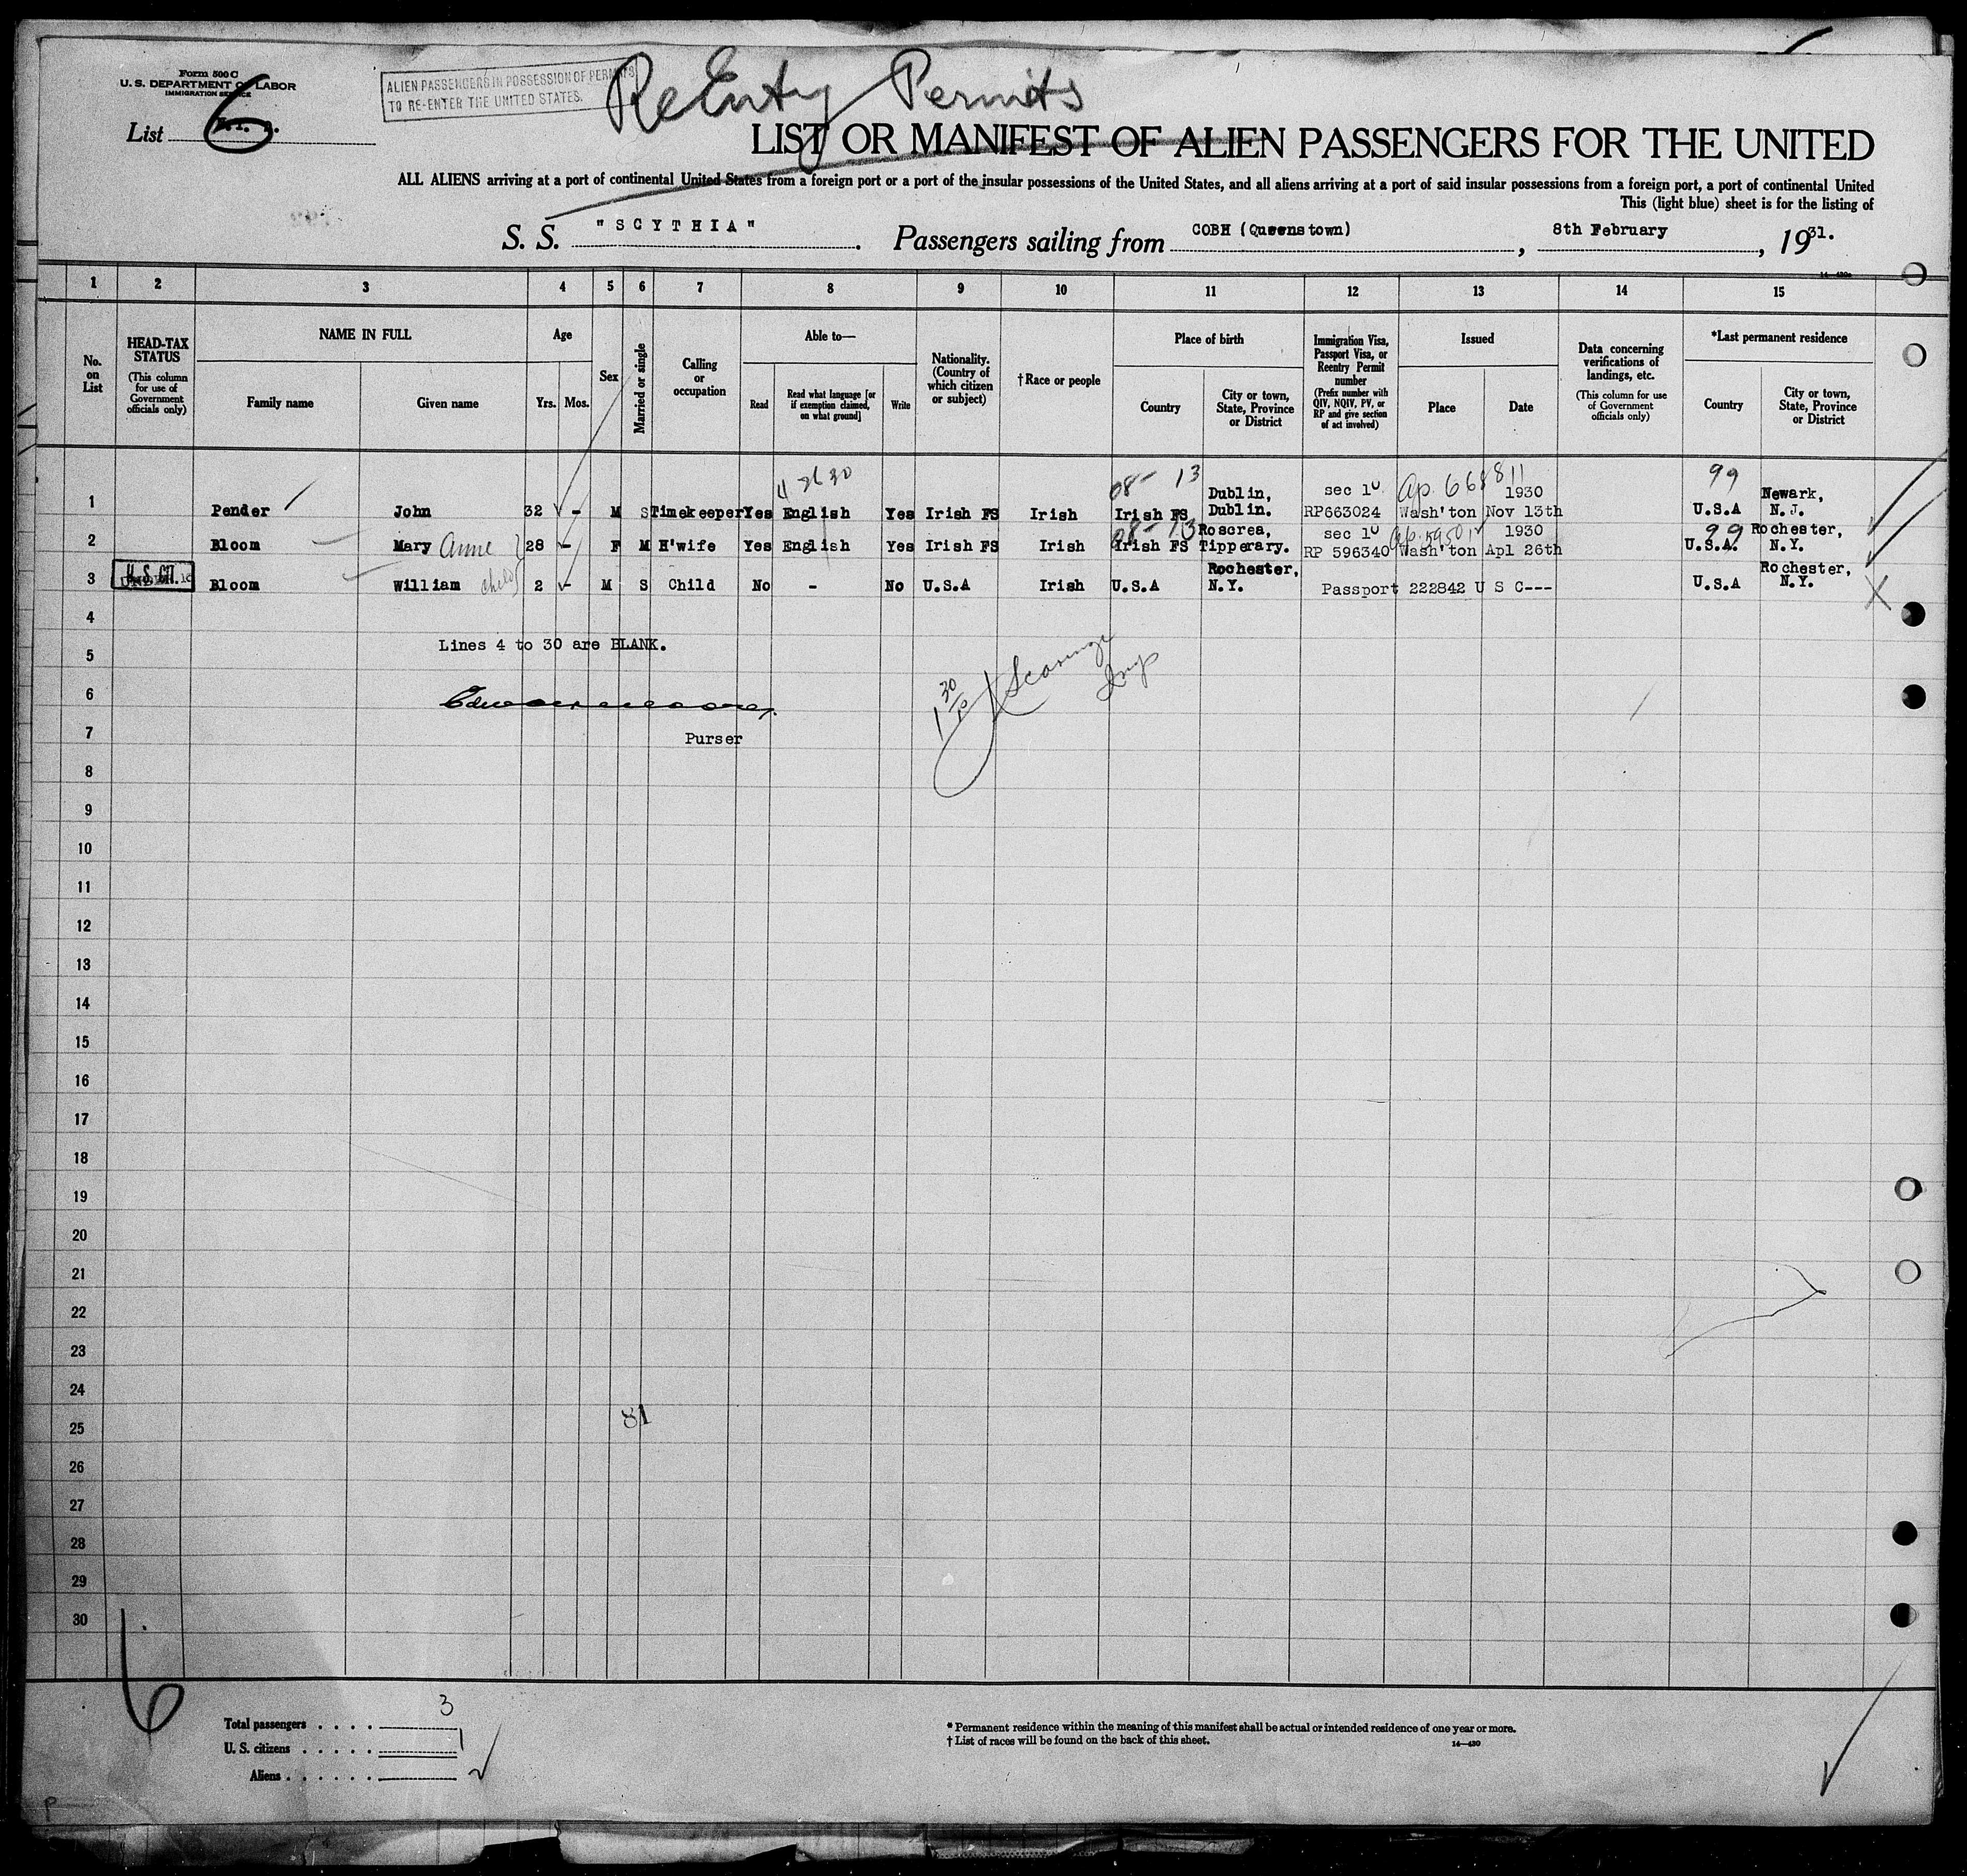 Form 500 C
U. S. DEPARTMENT OF LABOR
IMMIGRATION SERVICE
ALIEN PASSENGERS IN POSSESSION OF PERMITS
TO RE-ENTER THE UNITED STATES.
ReEntry Permits
List 6
LIST OR MANIFEST OF ALIEN PASSENGERS FOR THE UNITED
ALL ALIENS arriving at a port of continental United States from a foreign port or a port of the insular possessions of the United States, and all aliens arriving at a port of said insular possessions from a foreign port, a port of continental United
This (light blue) sheet is for the listing of
S. S. "SCYTHIA". Passengers sailing from COBH (Queenstown), 8th February, 1931.
14-430a
1 2 3 4 5 6 7 8 9 10 11 12 13 14 15
No. on List
HEAD-TAX STATUS (This column for use of Government officials only)
NAME IN FULL
Family name Given name
Age
Yrs. Mos.
Sex
Married or single
Calling or occupation
Able to—
Read Read what language [or if exemption claimed, on what ground] Write
Nationality. (Country of which citizen or subject)
† Race or people
Place of birth
Country City or town, State, Province or District
Immigration Visa, Passport Visa, or Reentry Permit number (Prefix number with QIV, NQIV, PV, or RP and give section of act involved)
Issued
Place Date
Data concerning verifications of landings, etc. (This column for use of Government officials only)
*Last permanent residence
Country City or town, State, Province or District
4 2630 08- 13 Dublin, sec 10 Ap. 668811 1930 99 Newark,
1 Pender John 32 - M S Timekeeper Yes English Yes Irish FS Irish Irish FS Dublin. RP663024 Wash'ton Nov 13th U.S.A N.J.
08- 13 Roscrea, sec 10 1930 99 Rochester,
2 Bloom Mary Anne 28 - F M H'wife Yes English Yes Irish FS Irish Irish FS Tipperary. RP 596340 Wash'ton Apl 26th U.S.A. N.Y.
Rochester, Rochester,
3 U.S.CIT. Bloom William Child 2 - M S Child No - No U.S.A Irish U.S.A N.Y. Passport 222842 U S C--- U.S.A N.Y.
4
Lines 4 to 30 are BLANK.
5
6
7 Purser
8
9
10
11
12
13
14
15
16
17
18
19
20
21
22
23
24
81
25
26
27
28
29
30
6
Total passengers . . . . 3
U. S. citizens . . . . . 1
Aliens . . . . . .
* Permanent residence within the meaning of this manifest shall be actual or intended residence of one year or more.
† List of races will be found on the back of this sheet.
14-430